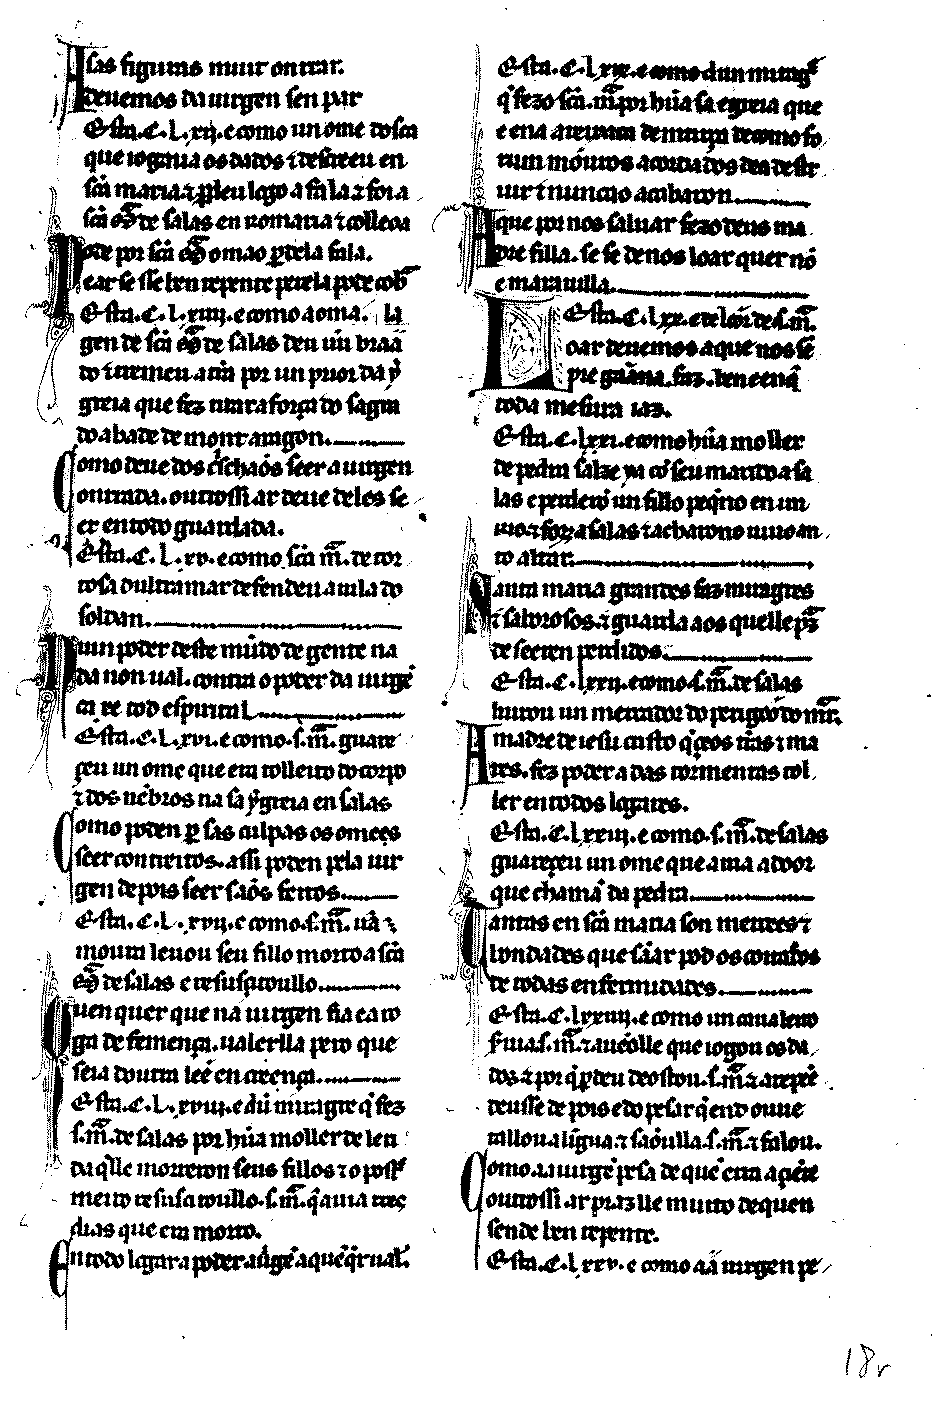 A sas figuras muit onrrar.
deuemos da uirgen sen par
Esta .C.L.xij. e como un ome de sca
que iogaua os dados ⁊ descreeu en
sca maria ⁊ p̲deu logo a fala ⁊ foi a
sca M̃ de salas en romaria ⁊ colleoa
Pode por sca M̃ o mao p̲dela fala.
ear se sse ben repente per ela pode cob̃
Esta .C.L.xiiij. e como a oma
gen de sca M̃ de salas deu un braa
do ⁊ tremeu a t̃ra por un prior da ỹ
greia que fez tirar a força do sagra
do abade de mont aragon.
Como deue dos crischãos seer a uirgen
onrrada. outrossi ar deue deles se
er en todo guardada.
Esta .C.L.xv. e como sca M̃. de tor
tosa d ultramar defendeu a uila do
soldan.
Niun poder deste mũdo de gente na
da non ual. contra o poder da uirgẽ
ca x̃e tod espirital.
Esta .C.L.xvi. e como .s.M̃. guare
çeu un ome que era tolleito do corpo
⁊ dos nẽbros na sa ỹgreia en salas
Como poden p̲ sas culpas os omees
seer contreitos. assi poden pela uir
gen depois seer sãos feitos.
Esta .C.L.xvij. e como .s.M̃. ũa
moura leuou seu fillo morto a sca
M̃ de salas e resuscitoullo.
Quen quer que na uirgen fia e a ro
ga de femença. ualerlla pero que
seia doutra lee en creença.
Esta .C.L.xviij. e dũ miragre q̃ fez
s.M̃. de salas por hũa moller de leri
da q̃lle morreron seus fillos ⁊ o post
meiro resuscitoullo .s.M̃. q̃ auia tres
dias que era morto.
En todo logar a poder a uirgẽ a quẽ q̃r ual.
Esta .C.Lxix. e como dun miragre
q̃ fezo sca .M̃. por hũa sa egreia que
e ena arreixaca de murça de como fo
ron mouros acordados de a destr
uir ⁊ nunca o acabaron.
A que por nos saluar fezo deus ma
dre filla. se se de nos loar quer nõ
e marauilla.
Esta .C.Lxx. e de loor de .s.M̃.
Loar deuemos a que nos sẽ
pre gãana. faz. ben e en q̃
toda mesura iaz.
Esta .C.Lxxi. e como hũa moller
de pedra salze ya cõ seu marido a sa
las e perderõ un fillo peq̃no en un
rio. ⁊ foy a salas ⁊ acharono uiuo an
te o altar.
Santa maria grandes faz miragres
⁊ saborosos. ⁊ guarda aos que lle p̃z
de seeren perdidos.
Esta .C.Lxxij. e como .s.M̃. de salas
liurou un mercador do perigoo do mar.
A madre de iesu cristo q̃ ceos t̃ras ⁊ ma
res. fez poder a das tormentas tol
ler en todos logares.
Esta .C.Lxxiij. e como .s.M̃. de salas
guareçeu un ome que auia a door
que chamã da pedra.
Tantas en sca maria son mercees ⁊
bondades que sãar pod os coitados
de todas enfermidades.
Esta .C.Lxxiiij. e como un caualeiro
seruia .s.M̃. ⁊ auẽolle que iogou os da
dos ⁊ por q̃ p̲deu deostou .s.M̃. ⁊ arrepẽ
deusse depois e do pesar q̃ end ouue
tallou a lĩgua. ⁊ sãoulla .s.M̃. ⁊ falou.
Como a uirgẽ pesa de quẽ erra a çiẽte
outrossi ar praz lle muito de quen
sende ben repente.
Esta .C.Lxxv. e como a uirgen pe
18r